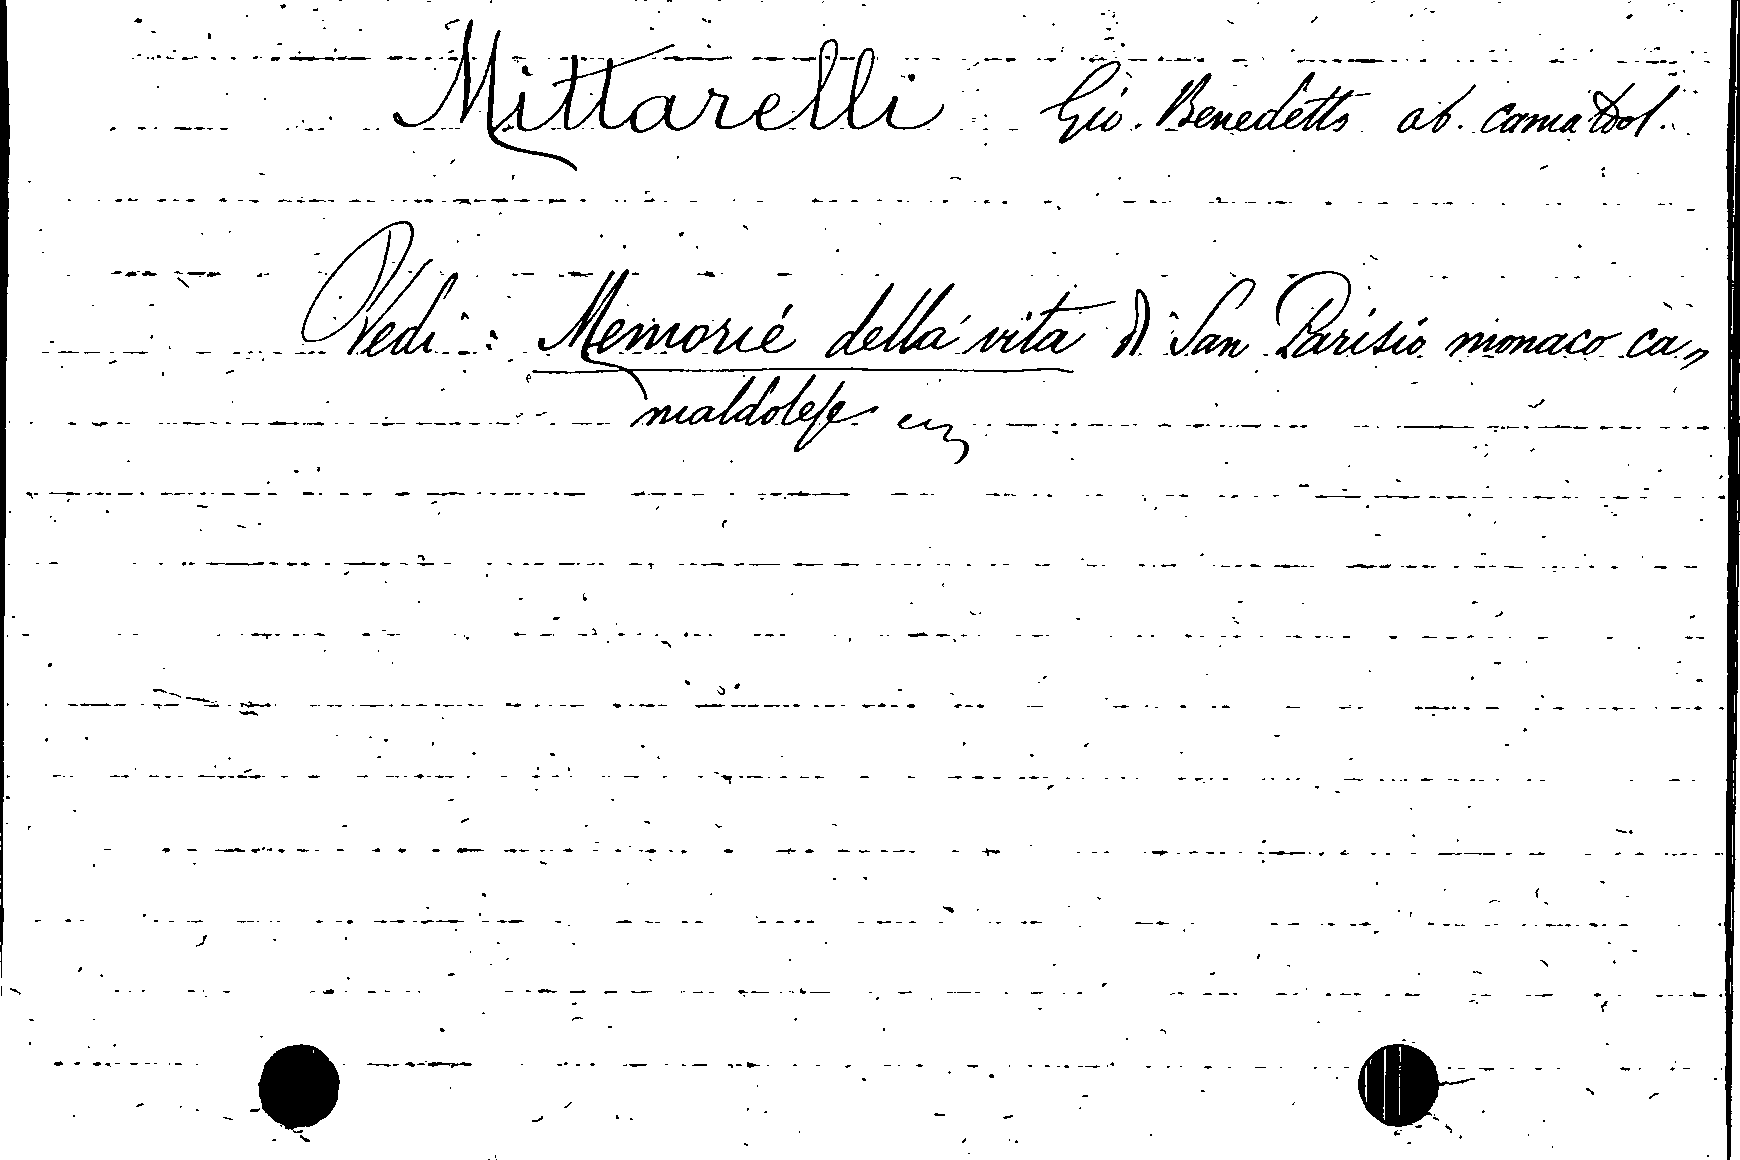 Mittarelli Gio. Benedetto ab. camaldol.
Vedi: Memorie della vita di San Parisio monaco ca„
maldolese